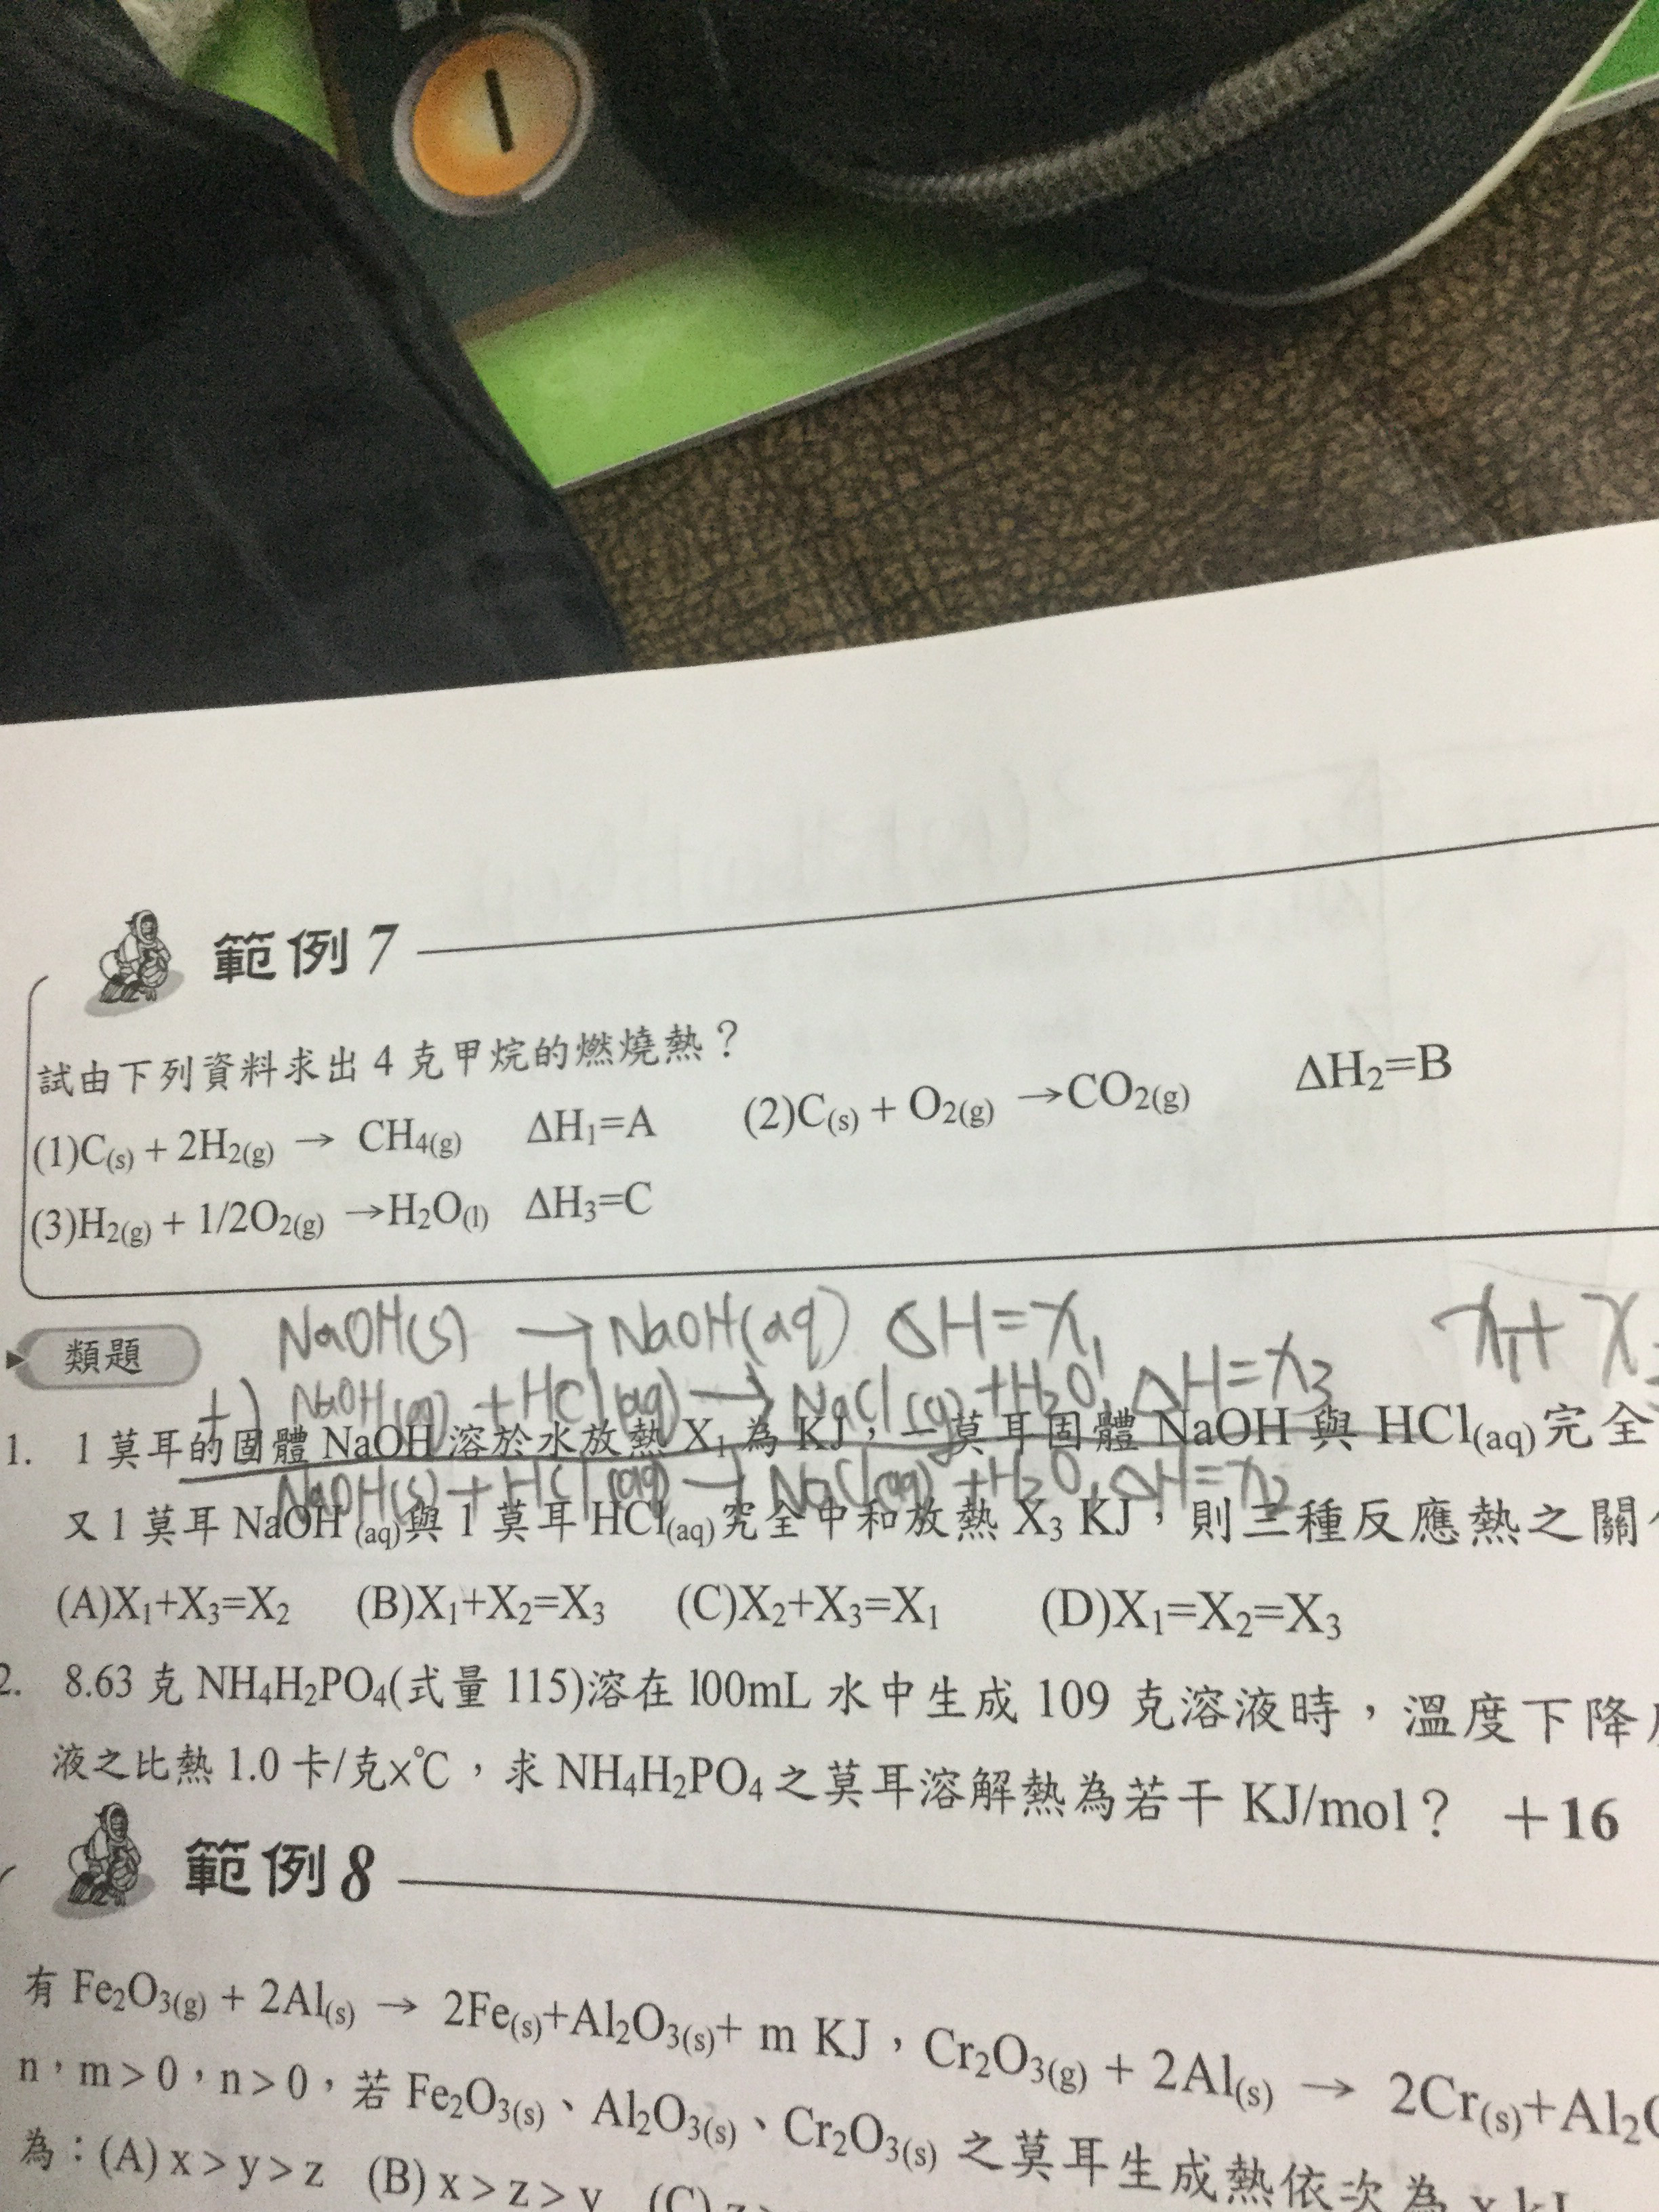 範例7
試由下列資料求出 4 克甲烷的燃燒熱？
(1)C(s) + 2H2(g) → CH4(g) ΔH1=A (2)C(s) + O2(g) →CO2(g) ΔH2=B
(3)H2(g) + 1/2O2(g) →H2O(l) ΔH3=C
類題
NaOH(s) → NaOH(aq) ΔH=X1 X1+X
+) NaOH(aq) +HCl(aq)→ NaCl(aq)+H2O, ΔH=X3
1. 1 莫耳的固體 NaOH 溶於水放熱 X1 為 KJ，一莫耳固體 NaOH 與 HCl(aq)完全
NaOH(s)+HCl(aq)→NaCl(aq)+H2O, ΔH=X2
又 1 莫耳 NaOH (aq)與 1 莫耳 HCl(aq)完全中和放熱 X3 KJ，則三種反應熱之關
(A)X1+X3=X2 (B)X1+X2=X3 (C)X2+X3=X1 (D)X1=X2=X3
2. 8.63 克 NH4H2PO4(式量 115)溶在 100mL 水中生成 109 克溶液時，溫度下降
液之比熱 1.0 卡/克×℃，求 NH4H2PO4 之莫耳溶解熱為若干 KJ/mol？ +16
範例8
有 Fe2O3(g) + 2Al(s) → 2Fe(s)+Al2O3(s)+ m KJ，Cr2O3(g) + 2Al(s) → 2Cr(s)+Al2
n，m>0，n>0，若 Fe2O3(s)、Al2O3(s)、Cr2O3(s) 之莫耳生成熱依次為 x kJ
為：(A) x>y>z (B) x>z>y (C)